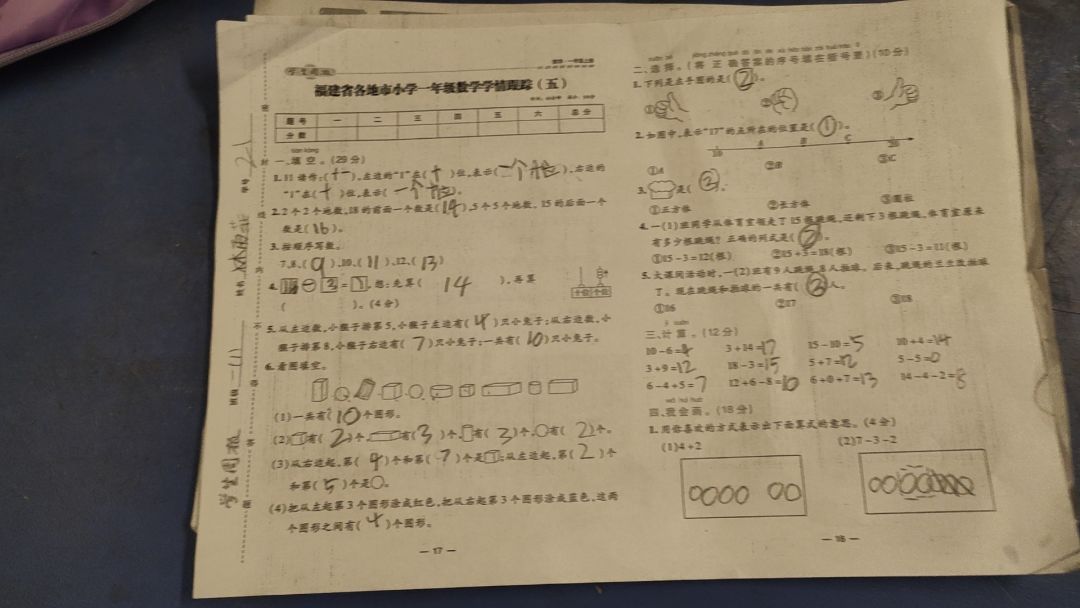 福建省各地市小学一年级数学学情跟踪(五)
题号 一 二 三 四 五 六 总分
分数
tián kòng
一、填空。(29分)
1. 11读作:(十一),左边的“1”在(十)位,表示(一个十),右边的
“1”在(十)位,表示(一个十位)。
2. 2个2个地数,18的前面一个数是(19),5个5个地数,15的后面一个
数是(16)。
3. 按顺序写数。
7、8、(9)、10、(11)、12、(13)
想:先算(14),再算
十位 个位
( )。(4分)
5. 从左边数,小猴子排第5,小猴子左边有(4)只小兔子;从右边数,小
猴子排第8,小猴子右边有(7)只小兔子;一共有(10)只小兔子。
6. 看图填空。
(1)一共有(10)个图形。
(2) 有(2)个, 有(3)个, 有(3)个, 有(2)个。
(3)从右边起,第(9)个和第(7)个是 ;从左边起,第(2)个
和第(5)个是 。
(4)把从左起第3个图形涂成红色,把从右起第3个图形涂成蓝色,这两
个图形之间有(4)个图形。
— 17 —
二、选择。(将正确答案的序号填在括号里)(10分)
1. 下列是左手图的是(②)。
① ② ③
2. 如图中,表示“17”的点所在的位置是(①)。
10 A B C 20
①A ②B ③C
3. 是(②)。
①正方体 ②长方体 ③圆柱
4. 一(1)班同学从体育室领走了15根跳绳,还剩下3根跳绳。体育室原来
有多少根跳绳?正确的列式是(②)。
①15-3=12(根) ②15+3=18(根) ③15-3=11(根)
5. 大课间活动时,一(2)班有9人跳绳,8人拍球。后来,跳绳的三生改拍球
了。现在跳绳和拍球的一共有(②)人。
①16 ②17 ③18
三、计算。(12分)
10-6=4 3+14=17 15-10=5 10+4=14
3+9=12 18-3=15 5+7=12 5-5=0
6-4+5=7 12+6-8=10 6+0+7=13 14-4-2=8
wǒ huì huà
四、我会画。(18分)
1. 用你喜欢的方式表示出下面算式的意思。(4分)
(1)4+2 (2)7-3-2
— 18 —